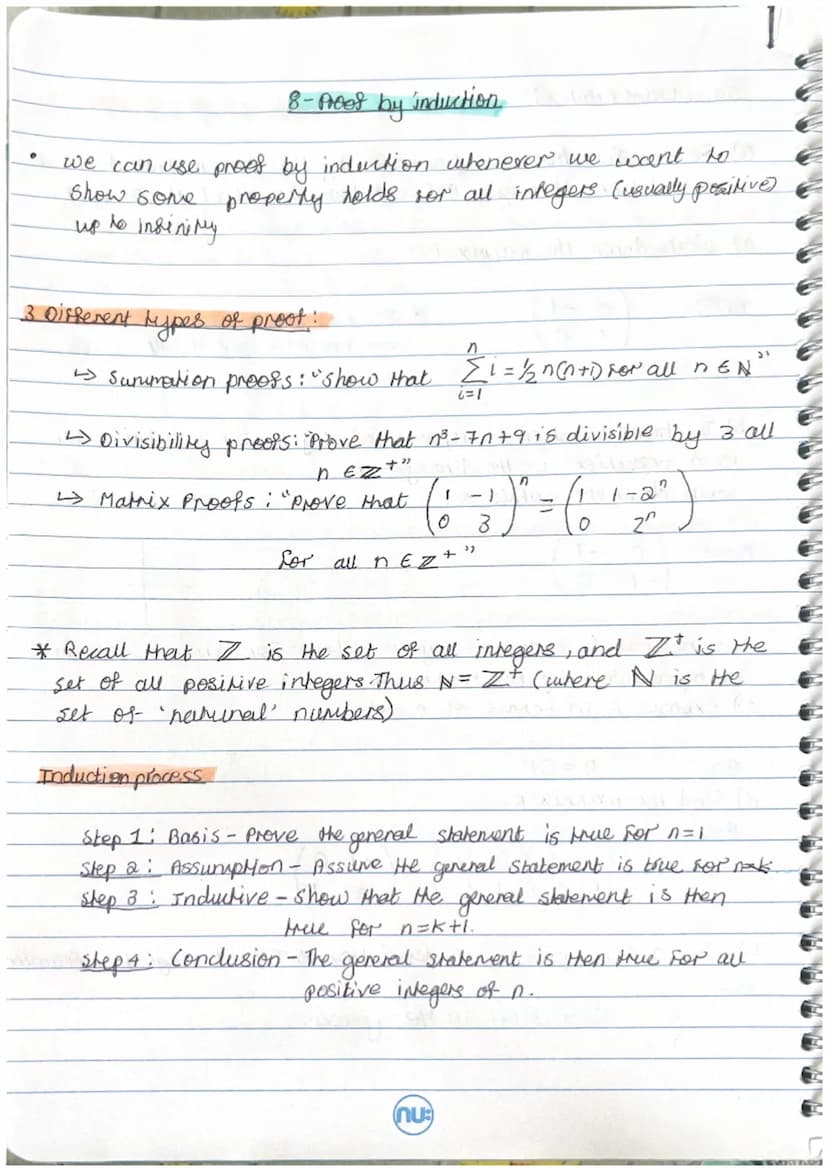 1
8-Proof by induction
• we can use proof by induction whenever we want to
show some property holds for all integers (usually positive)
up to infinity
3 Different types of proof:
↳ Summation proofs: "Show that \sum_{i=1}^{n} i = ½ n(n+1) for all n ∈ N"
↳ Divisibility proofs: "Prove that n³-7n+9 is divisible by 3 all
n ∈ Z⁺"
↳ Matrix Proofs: "Prove that \begin{pmatrix} 1 & -1 \\ 0 & 3 \end{pmatrix}^n = \begin{pmatrix} 1 & 1-2^n \\ 0 & 2^n \end{pmatrix}
for all n ∈ Z⁺"
* Recall that Z is the set of all integers, and Z⁺ is the
set of all positive integers. Thus N = Z⁺ (where N is the
set of 'natural' numbers)
Induction process
Step 1: Basis - Prove the general statement is true for n=1
Step 2: Assumption - Assume the general statement is true for n=k.
Step 3: Inductive - Show that the general statement is then
true for n=k+1.
Step 4: Conclusion - The general statement is then true for all
positive integers of n.
nu: